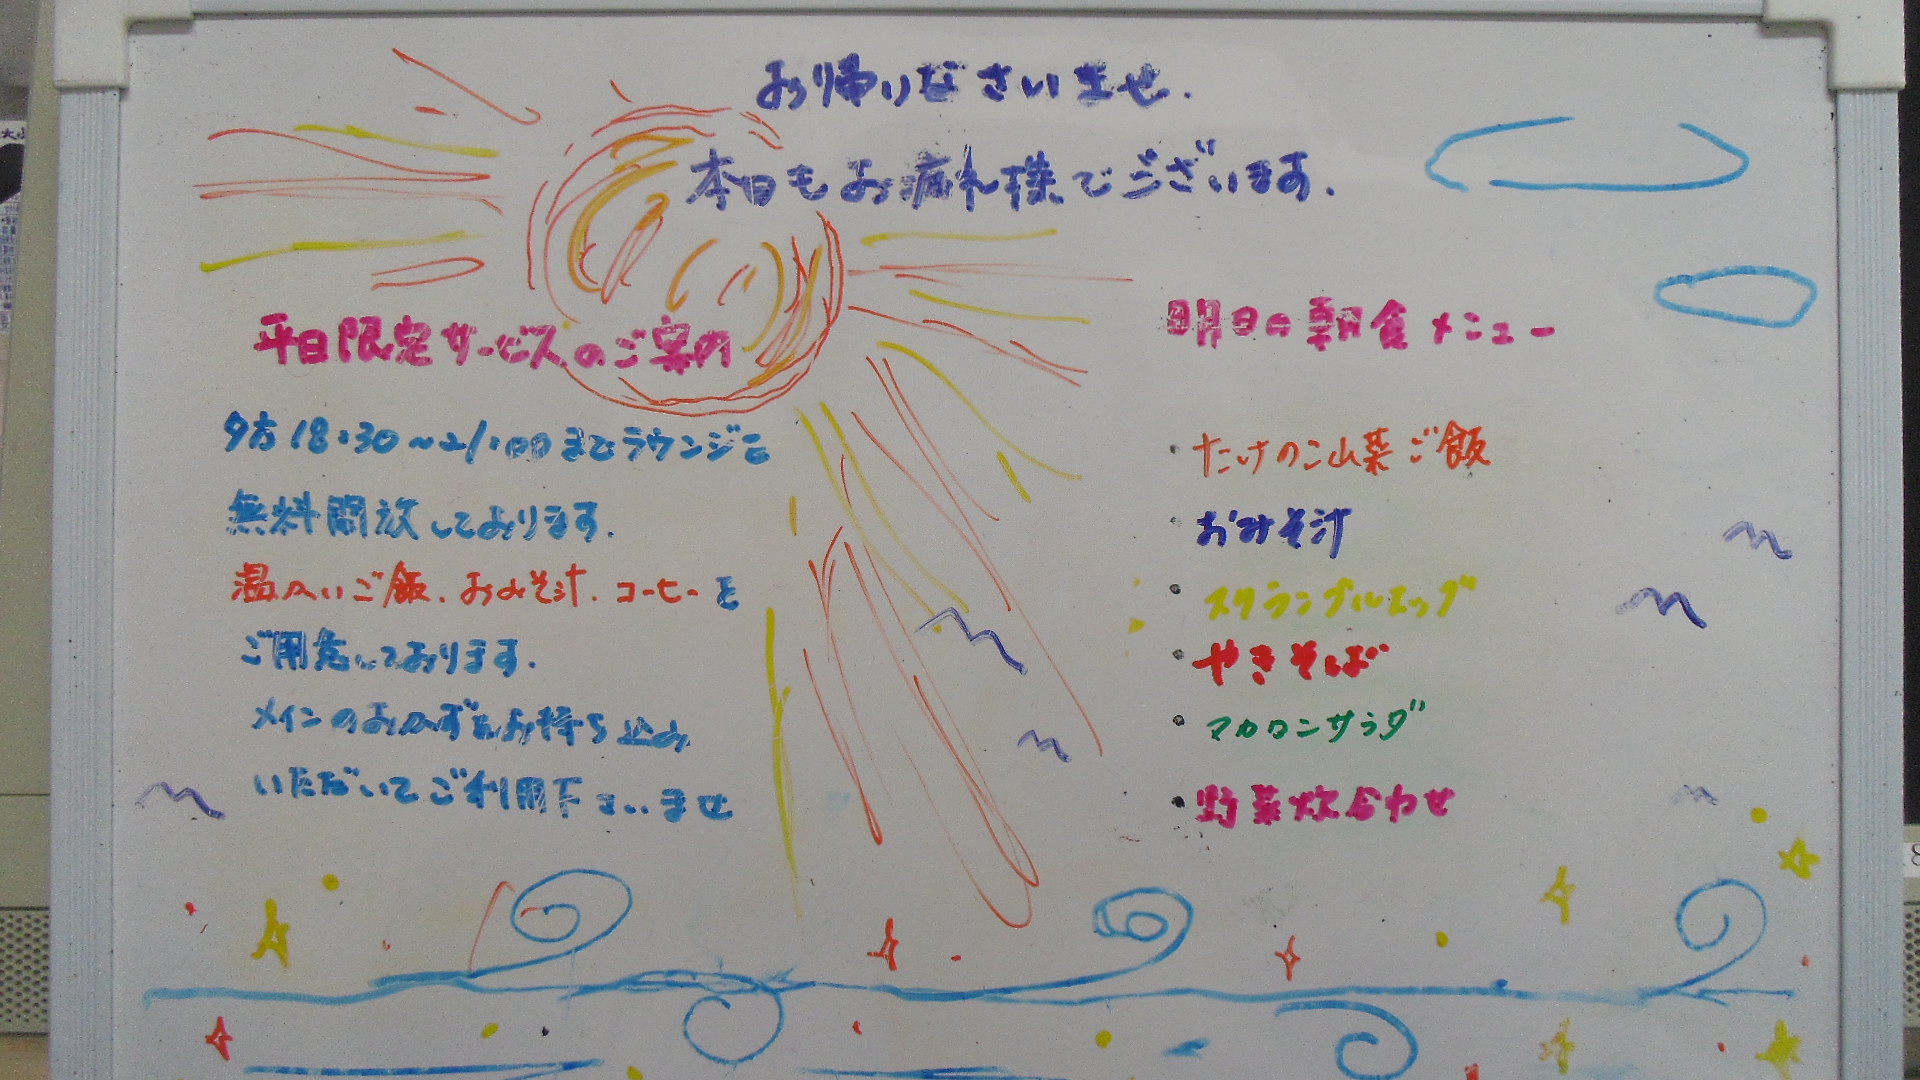 お帰りなさいませ.
本日もお疲れ様でございます.
平日限定サービスのご案内
夕方18:30～21:00までラウンジを
無料開放しております.
温かいご飯.おみそ汁.コーヒーを
ご用意しております.
メインのおかずをお持ち込み
いただいてご利用下さいませ
明日の朝食メニュー
・たけのこ山菜ご飯
・おみそ汁
・スクランブルエッグ
・やきそば
・マカロンサラダ
・野菜炊合わせ